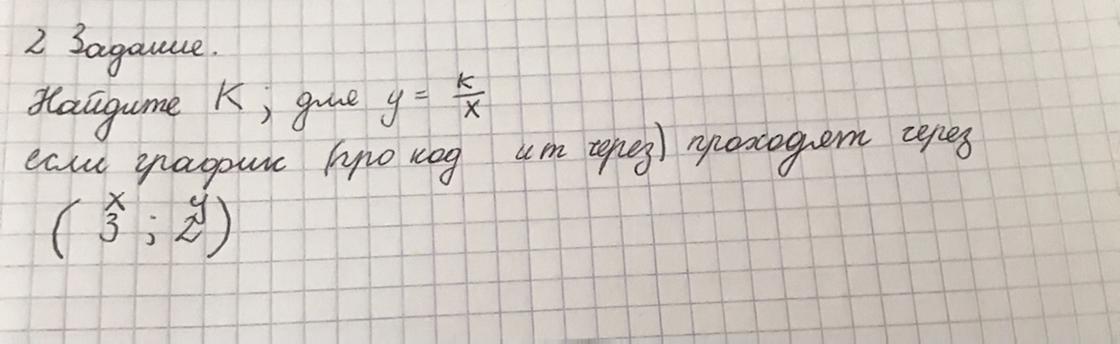 2 Задание.
Найдите K; для y = K/x
если график (про ход ит через) проходят через
(3; 2)
x y